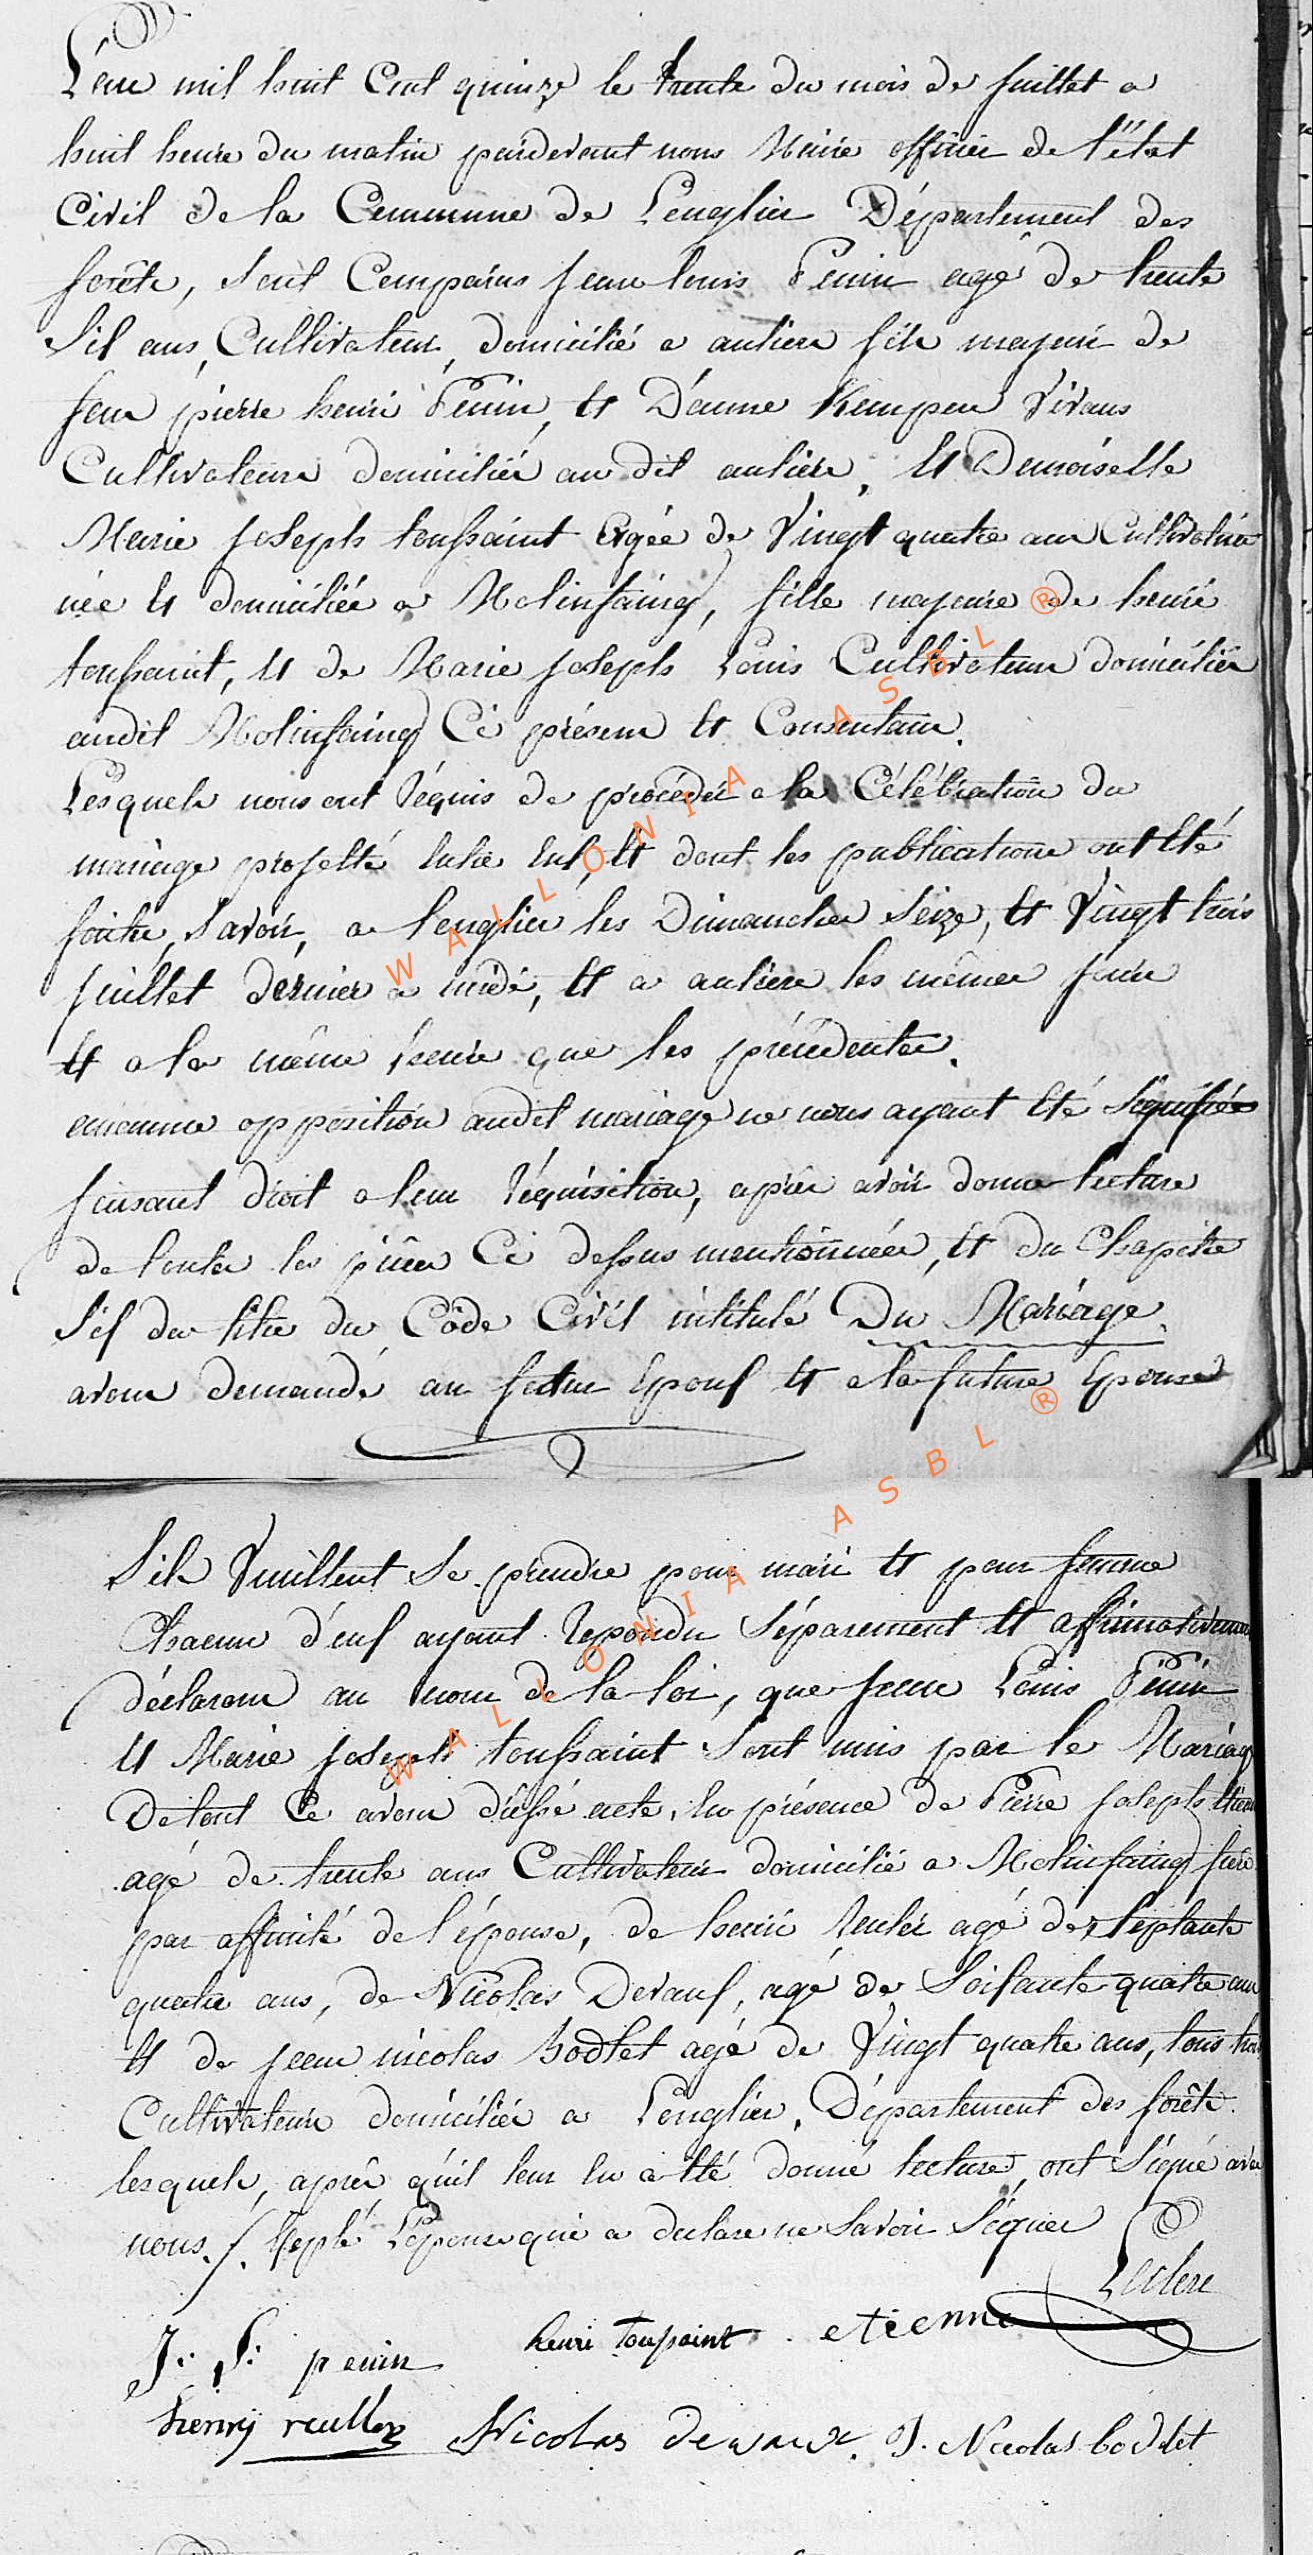 L'an mil huit Cent quinze le trente du mois de juillet a
huit heure du matin pardevant nous Maire officier de l'état
Civil de la Commune de Lenglier Département des
forêts, sont Comparus jean louis Penin agé de trente
Sif ans, Cultivateur, domicilié a anlier fils majeur de
feu pierre henri Penin, et D'anne Kempen Vivans
Cultivateurs domiciliés au dit anlier, et Demoiselle
Marie joseph toussaint agée de Vingt quatre ans Cultivatrice
née et domiciliée a Molinfaing, fille majeure de henri
toussaint, et de Marie joseph Louis Cultivateurs domiciliés
audit Molinfaing Ci présens et Consentans.
Lesquels nous ont réquis de procéder a la Célébration du
mariage projetté entre Eux, et dont les publications ont été
faites, savoir, a lenglier les Dimanches Seize, et Vingt trois
juillet dernier a midi, et a anlier les mêmes jours
et a la même heure que les précédentes.
aucune opposition audit mariage ne nous ayant été Signifiée
faisant droit a leur réquisition, après avoir donné lecture
de toutes les pièces Ci dessus mentionnées, et du Chapitre
Sif du titre du Code Civil intitulé Du Mariage.
avons demandé au futur Epouf et a la future Epouse
S'ils Veuillent Se prendre pour mari et pour femme
Chacun d'euf ayant repondu Séparement et affirmativement
déclarons au nom de la loi, que jean Louis Penin
et Marie joseph toussaint sont unis par le Mariage
De tout Ce avons dressé acte, en présence de Pierre joseph
agé de trente ans Cultivateur domicilié a Molinfaing frère
par affinité de l'épouse, de henri reuler agé de septante
quatre ans, de Nicolas Devauf, agé de Soifante quatre ans
et de jean nicolas Bodlet agé de Vingt quatre ans, tous trois
Cultivateurs domiciliés a Lenglier, Département des forêts.
lesquels, après qu'il leur en a été donné lecture, ont Signé avec
nous. /. Repté L'épouse qui a declare ne Savoir Signer
Leclere
J. L. penin henri toussaint etienne
henry reuller Nicolas dewaux. J. Nicolas bodlet
W A L L O N I A A S B L ®
W A L L O N I A A S B L ®